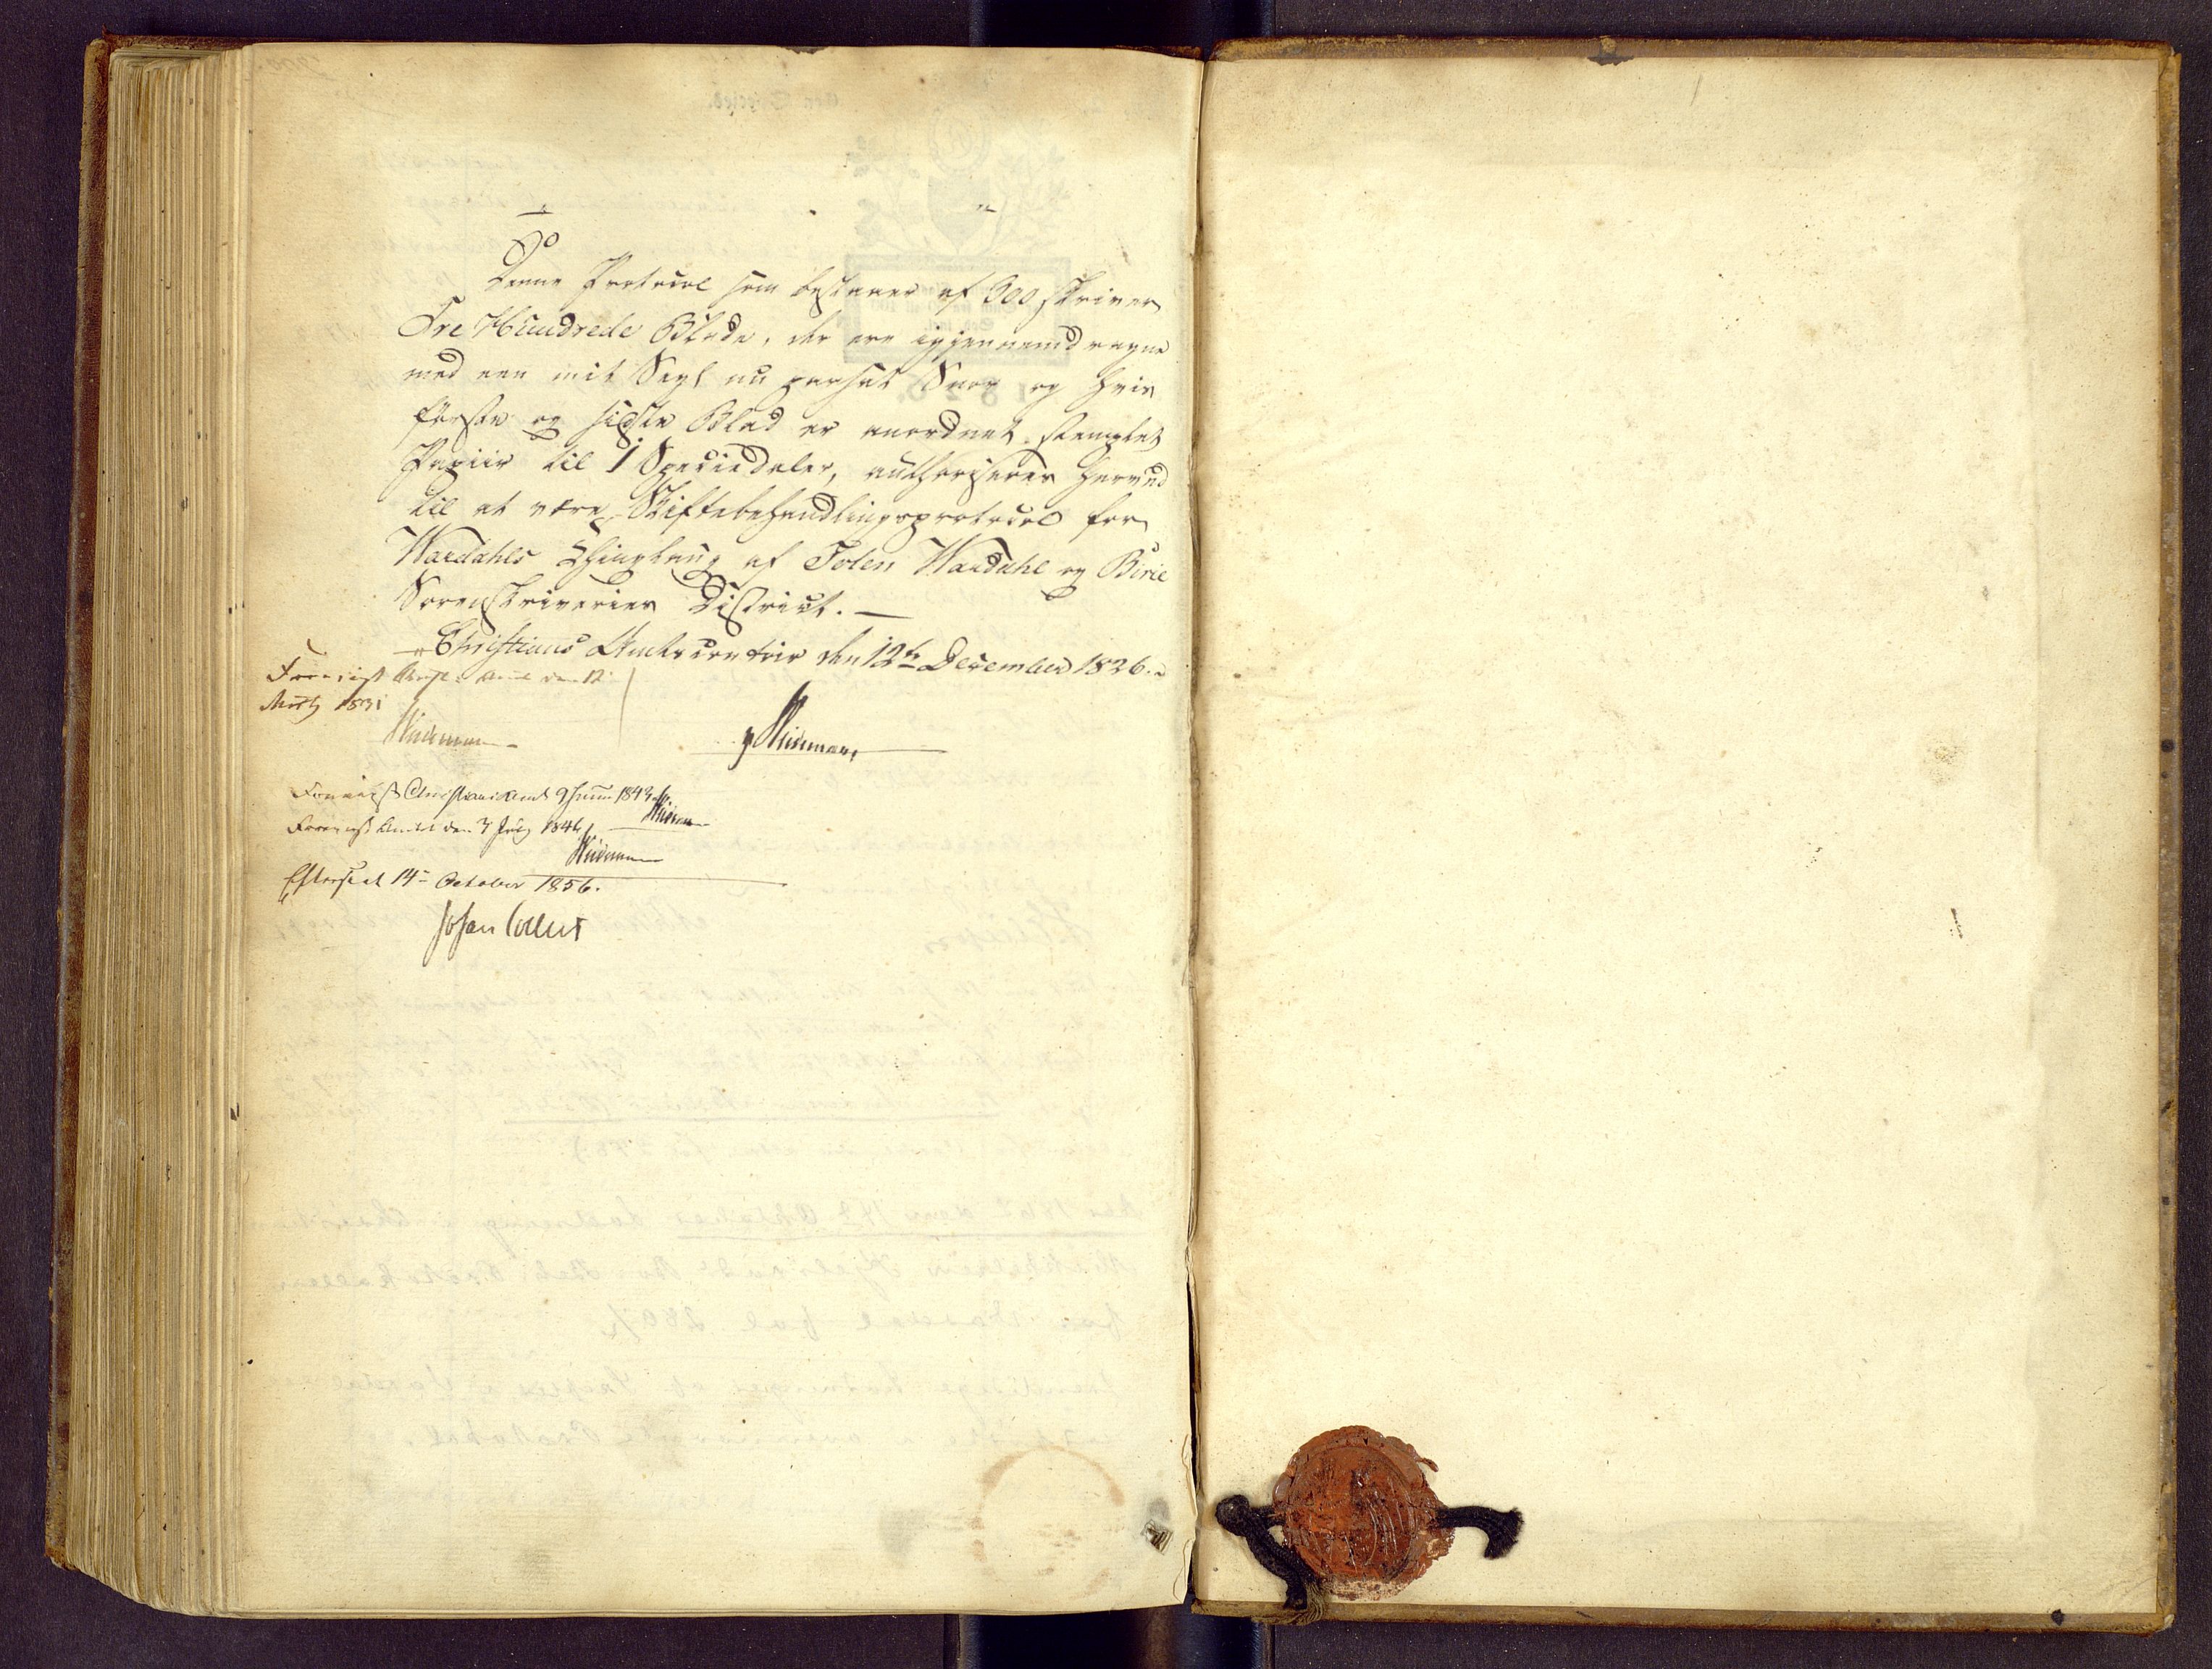 Denne Protocol som bestaaer af 300 skriver
Tre Hundrede Blade, der ere igjennemdragne
med een mit Segl paahæt Snor og hvis
første og sidste Blad er anordnet stemplet
Papiir til 1 Speciedaler, authoriseres herved
til at være Skiftebehandlingsprotocol for
Wardahls Thinglaug af Toten Wardahl og Birie
Sorenskriveries District.
Christians Amtscontoir den 12te December 1826.
Foreviist Christ. Amt den 12
Marts 1831
Weidemann
Weidemann
Foreviist Christians Amt 9 Juni 1843
Weidemann
Foreviist Amtet den 7 July 1846
Weidemann
Efterseet 14de October 1856.
Johan Collett